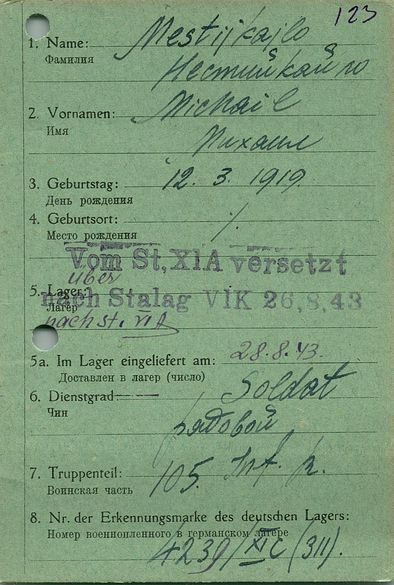 123
1. Name: Mestijkajlo
Фамилия Нестийкайло
2. Vornamen: Michail
Имя Михаил
3. Geburtstag: 12. 3. 1919.
День рождения
4. Geburtsort: ./.
Место рождения
Vom St. XIA versetzt
über
5. Lager:
nach Stalag VIK 26.8.43
Лагер
nach St. VIA
5a. Im Lager eingeliefert am: 28.8.43.
Доставлен в лагер (число)
6. Dienstgrad: Soldat
Чин рядовой
7. Truppenteil: 105. Inf. р.
Воинская часть
8. Nr. der Erkennungsmarke des deutschen Lagers:
Номер военнопленного в германском лагере
4239/XI C (311).